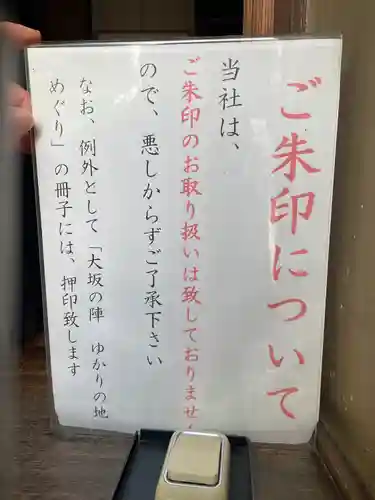 ご朱印について
当社は、
ご朱印のお取り扱いは致しておりません
ので、悪しからずご了承下さい
なお、例外として「大坂の陣　ゆかりの地
めぐり」の冊子には、押印致します